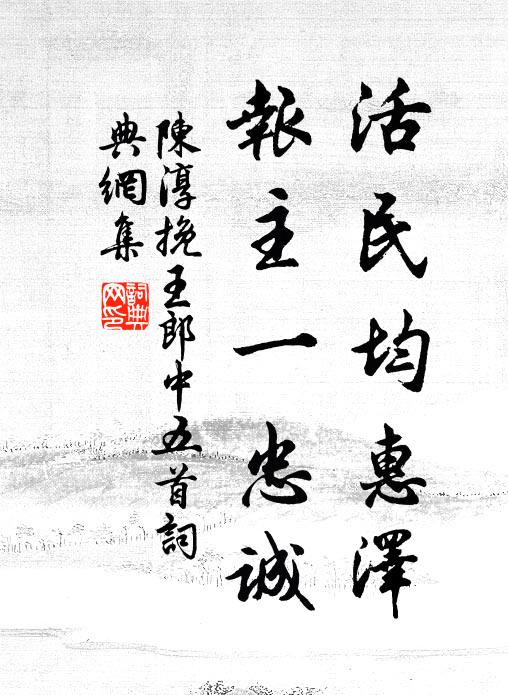 活民均惠澤
報主一忠誠
陳淳挽王郎中五首詞
典網集
詞典网印